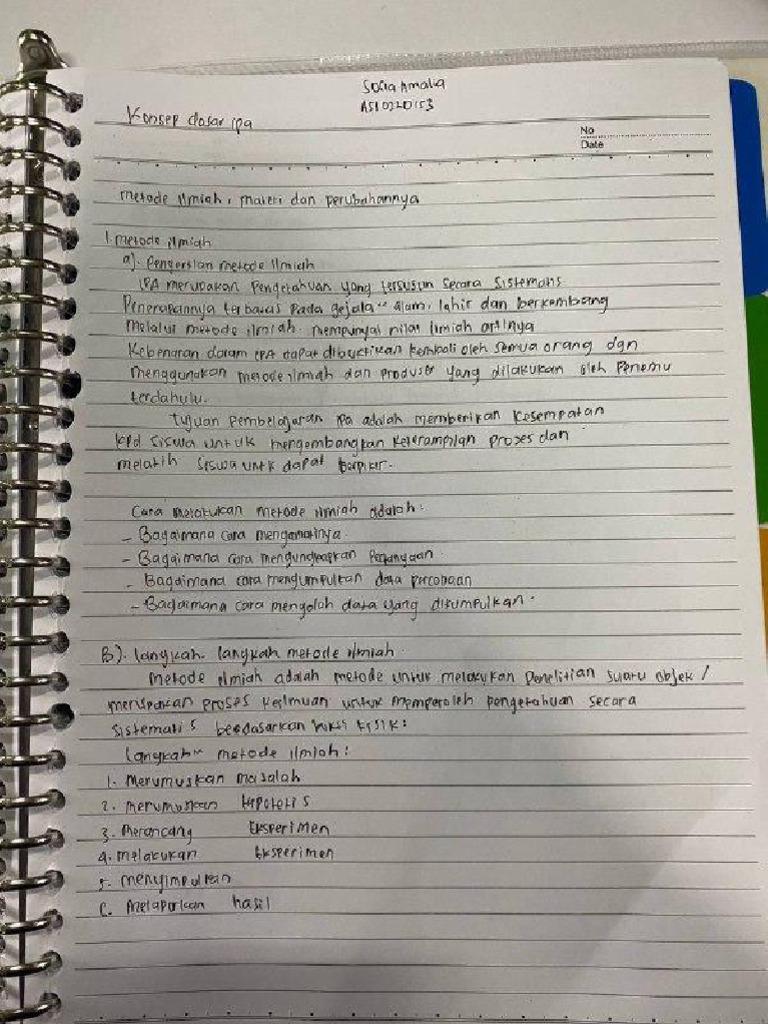 Sofia Amalia
A510220153
Konsep dasar ipa
No
Date
metode ilmiah, materi dan perubahannya
1. metode ilmiah
a). Pengertian metode ilmiah
IPA merupakan Pengetahuan yang tersusun secara Sistematis
Penerapannya terbatas pada gejala" alam, lahir dan berkembang
melalui metode ilmiah. mempunyai nilai ilmiah artinya
Kebenaran dalam IPA dapat dibuktikan kembali oleh semua orang dgn
menggunakan metode ilmiah dan produser yang dilakukan oleh Penemu
terdahulu.
tujuan pembelajaran ipa adalah memberikan Kesempatan
kpd siswa untuk mengembangkan keterampilan proses dan
melatih siswa untk dapat berpikir.
Cara melakukan metode ilmiah adalah:
- Bagaimana cara mengamatinya.
- Bagaimana cara mengungkapkan Pertanyaan.
- Bagaimana cara mengumpulkan data percobaan
- Bagaimana cara mengolah data yang dikumpulkan.
B). langkah-langkah metode ilmiah.
metode ilmiah adalah metode untuk melakukan Penelitian suatu objek /
merupakan proses keilmuan untuk memperoleh pengetahuan secara
sistematis berdasarkan bukti fisik:
langkah" metode ilmiah:
1. Merumuskan masalah
2. merumuskan hipotesis
3. Merancang Eksperimen
4. melakukan Eksperimen
5. menyimpulkan
6. Melaporkan hasil